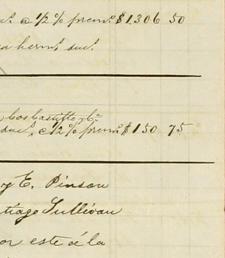 a 1/2 % prem.º $1,306 50
a herm.º suc.ˢ
suc.ˢ a 1/2 % prem.º $150, 75
y E. Pinson
tiago Sullivan
or este á la